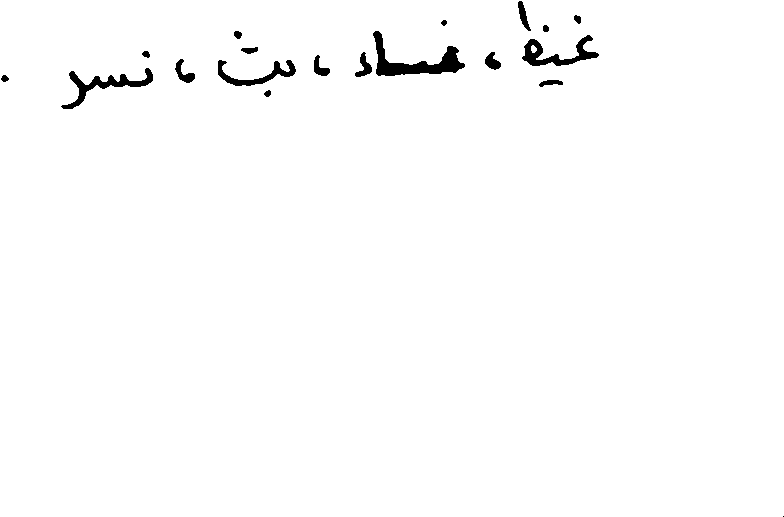 غيظ ، فساد ، بث ، نسر .